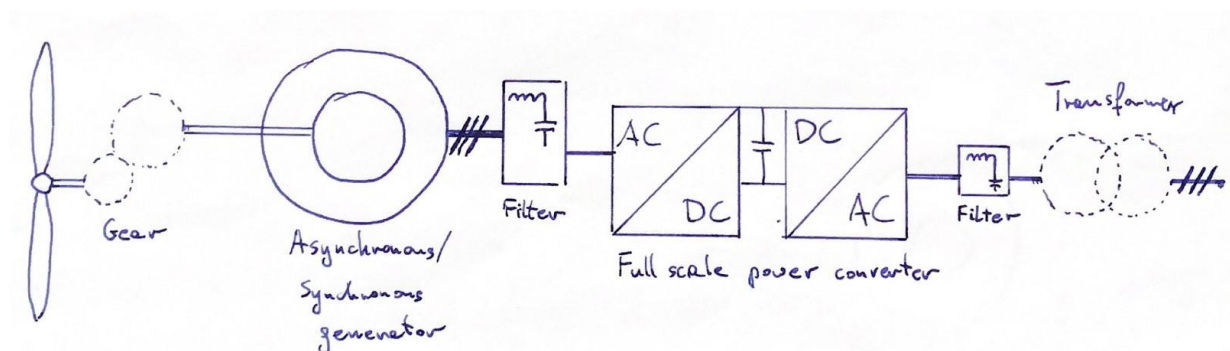 Gear
Asynchronous/
Synchronous
generator
Filter
AC
DC
DC
AC
Full scale power converter
Filter
Transformer